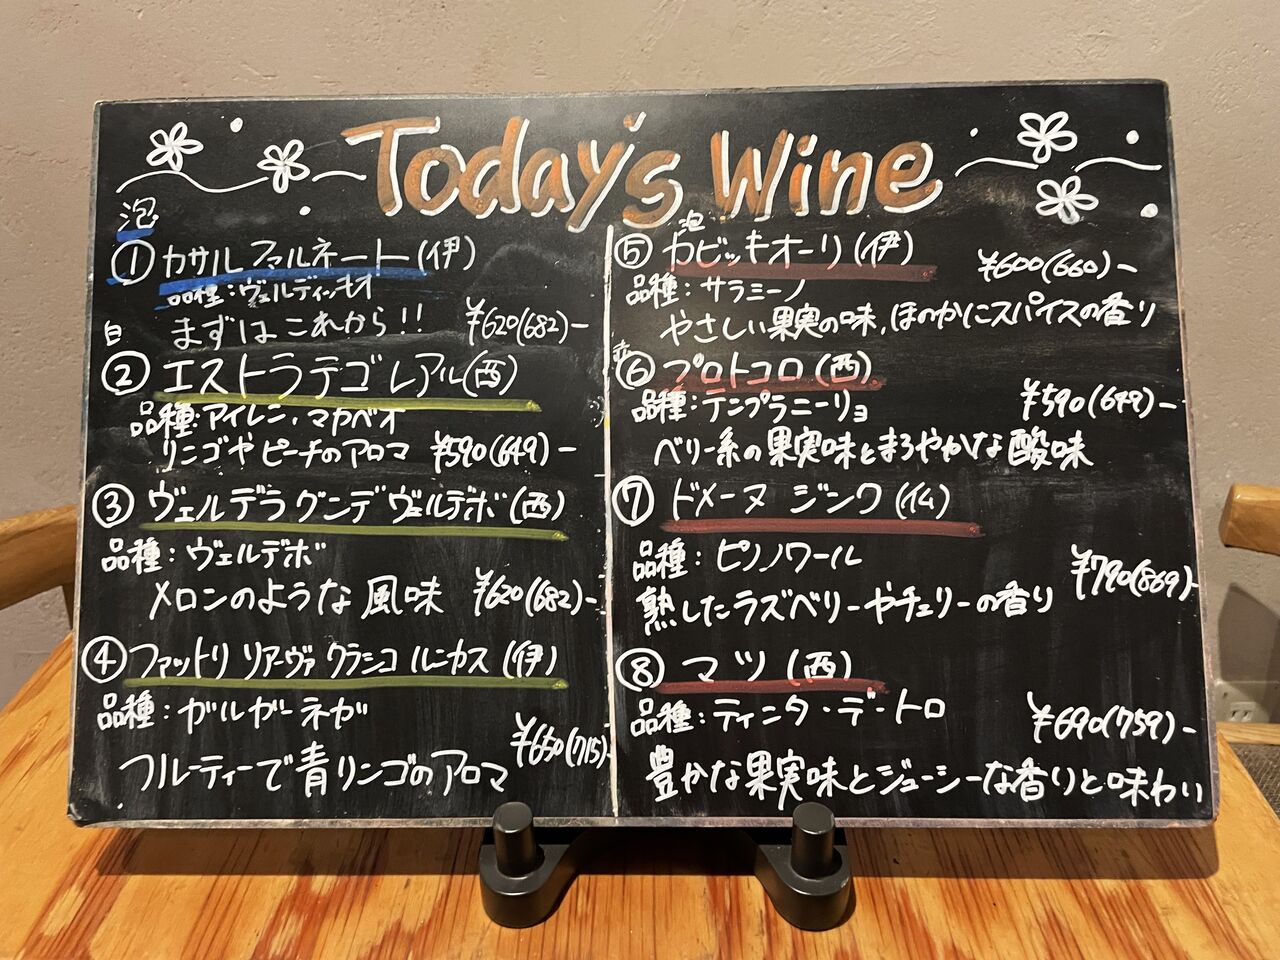 Today's Wine
泡
① カサル ファルネート (伊)
品種：ヴェルディッキオ
まずはこれから!! ¥620(682)-
白
② エストラテゴ レアル(西)
品種：アイレン・マカベオ
リンゴやピーチのアロマ ¥590(649)-
③ ヴェルデラ グンデ ヴェルデボ(西)
品種：ヴェルデボ
メロンのような風味 ¥620(682)-
④ ファットリ リアーヴァ クラシコ ルニカス (伊)
品種：ガルガーネガ
¥650(715)-
フルーティーで青リンゴのアロマ
泡
⑤ カビッキオーリ (伊) ¥600(660)-
品種：サラミーノ
やさしい果実の味，ほのかにスパイスの香り
赤
⑥ プロトコロ (西)
品種：テンプラニーリョ ¥590(649)-
ベリー系の果実味とまろやかな酸味
⑦ ドメーヌ ジンク (仏)
品種：ピノノワール ¥790(869)-
熟したラズベリーやチェリーの香り
⑧ マツ (西)
品種：ティンタ・デ・トロ ¥690(759)-
豊かな果実味とジューシーな香りと味わい